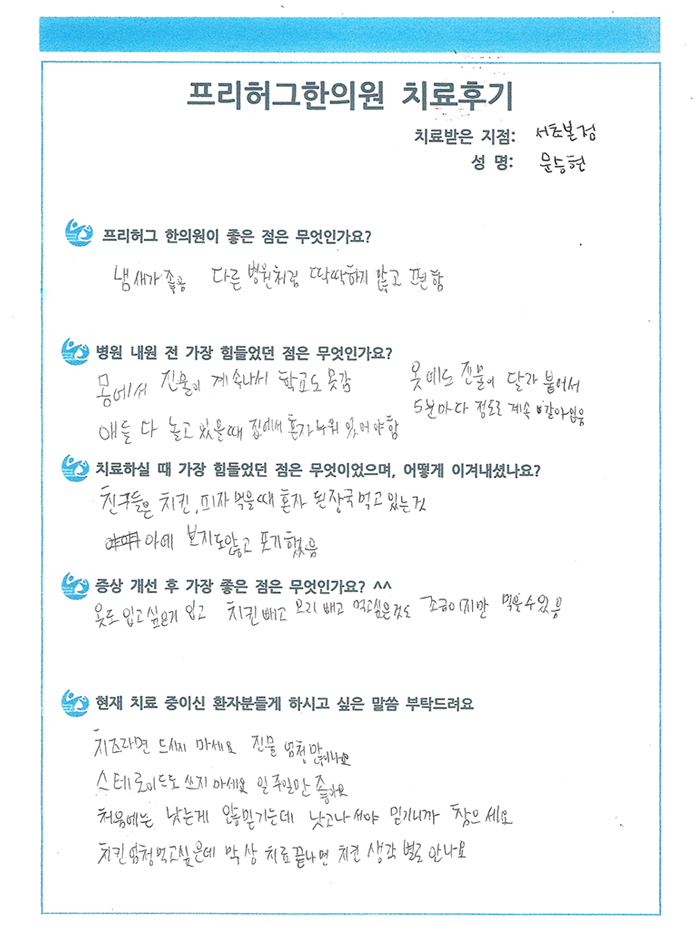 프리허그한의원 치료후기
치료받은 지점: 서초본점
성 명: 문승현
프리허그 한의원이 좋은 점은 무엇인가요?
냄새가 좋음 다른 병원처럼 딱딱하지 않고 편함
병원 내원 전 가장 힘들었던 점은 무엇인가요?
몸에서 진물이 계속나서 학교도 못감 옷에도 진물이 달라 붙어서
5분마다 정도로 계속 갈아입음
애들 다 놀고 있을때 집에서 혼자 누워 있어야 함
치료하실 때 가장 힘들었던 점은 무엇이었으며, 어떻게 이겨내셨나요?
친구들은 치킨, 피자 먹을때 혼자 된장국 먹고 있는것
아예 보지도않고 포기했음
증상 개선 후 가장 좋은 점은 무엇인가요? ^^
옷도 입고 싶은거 입고 치킨 빼고 오리 빼고 먹고싶은것도 조금이지만 먹을수있음
현재 치료 중이신 환자분들게 하시고 싶은 말씀 부탁드려요
치즈라면 드시지 마세요 진물 엄청 많
스테로이드도 쓰지 마세요 일주일만 좋아요
처음에는 낫는게 않믿기는데 낫고나서야 믿기니까 참으세요
치킨 엄청먹고싶은데 막상 치료 끝나면 치킨 생각 별로 안나요